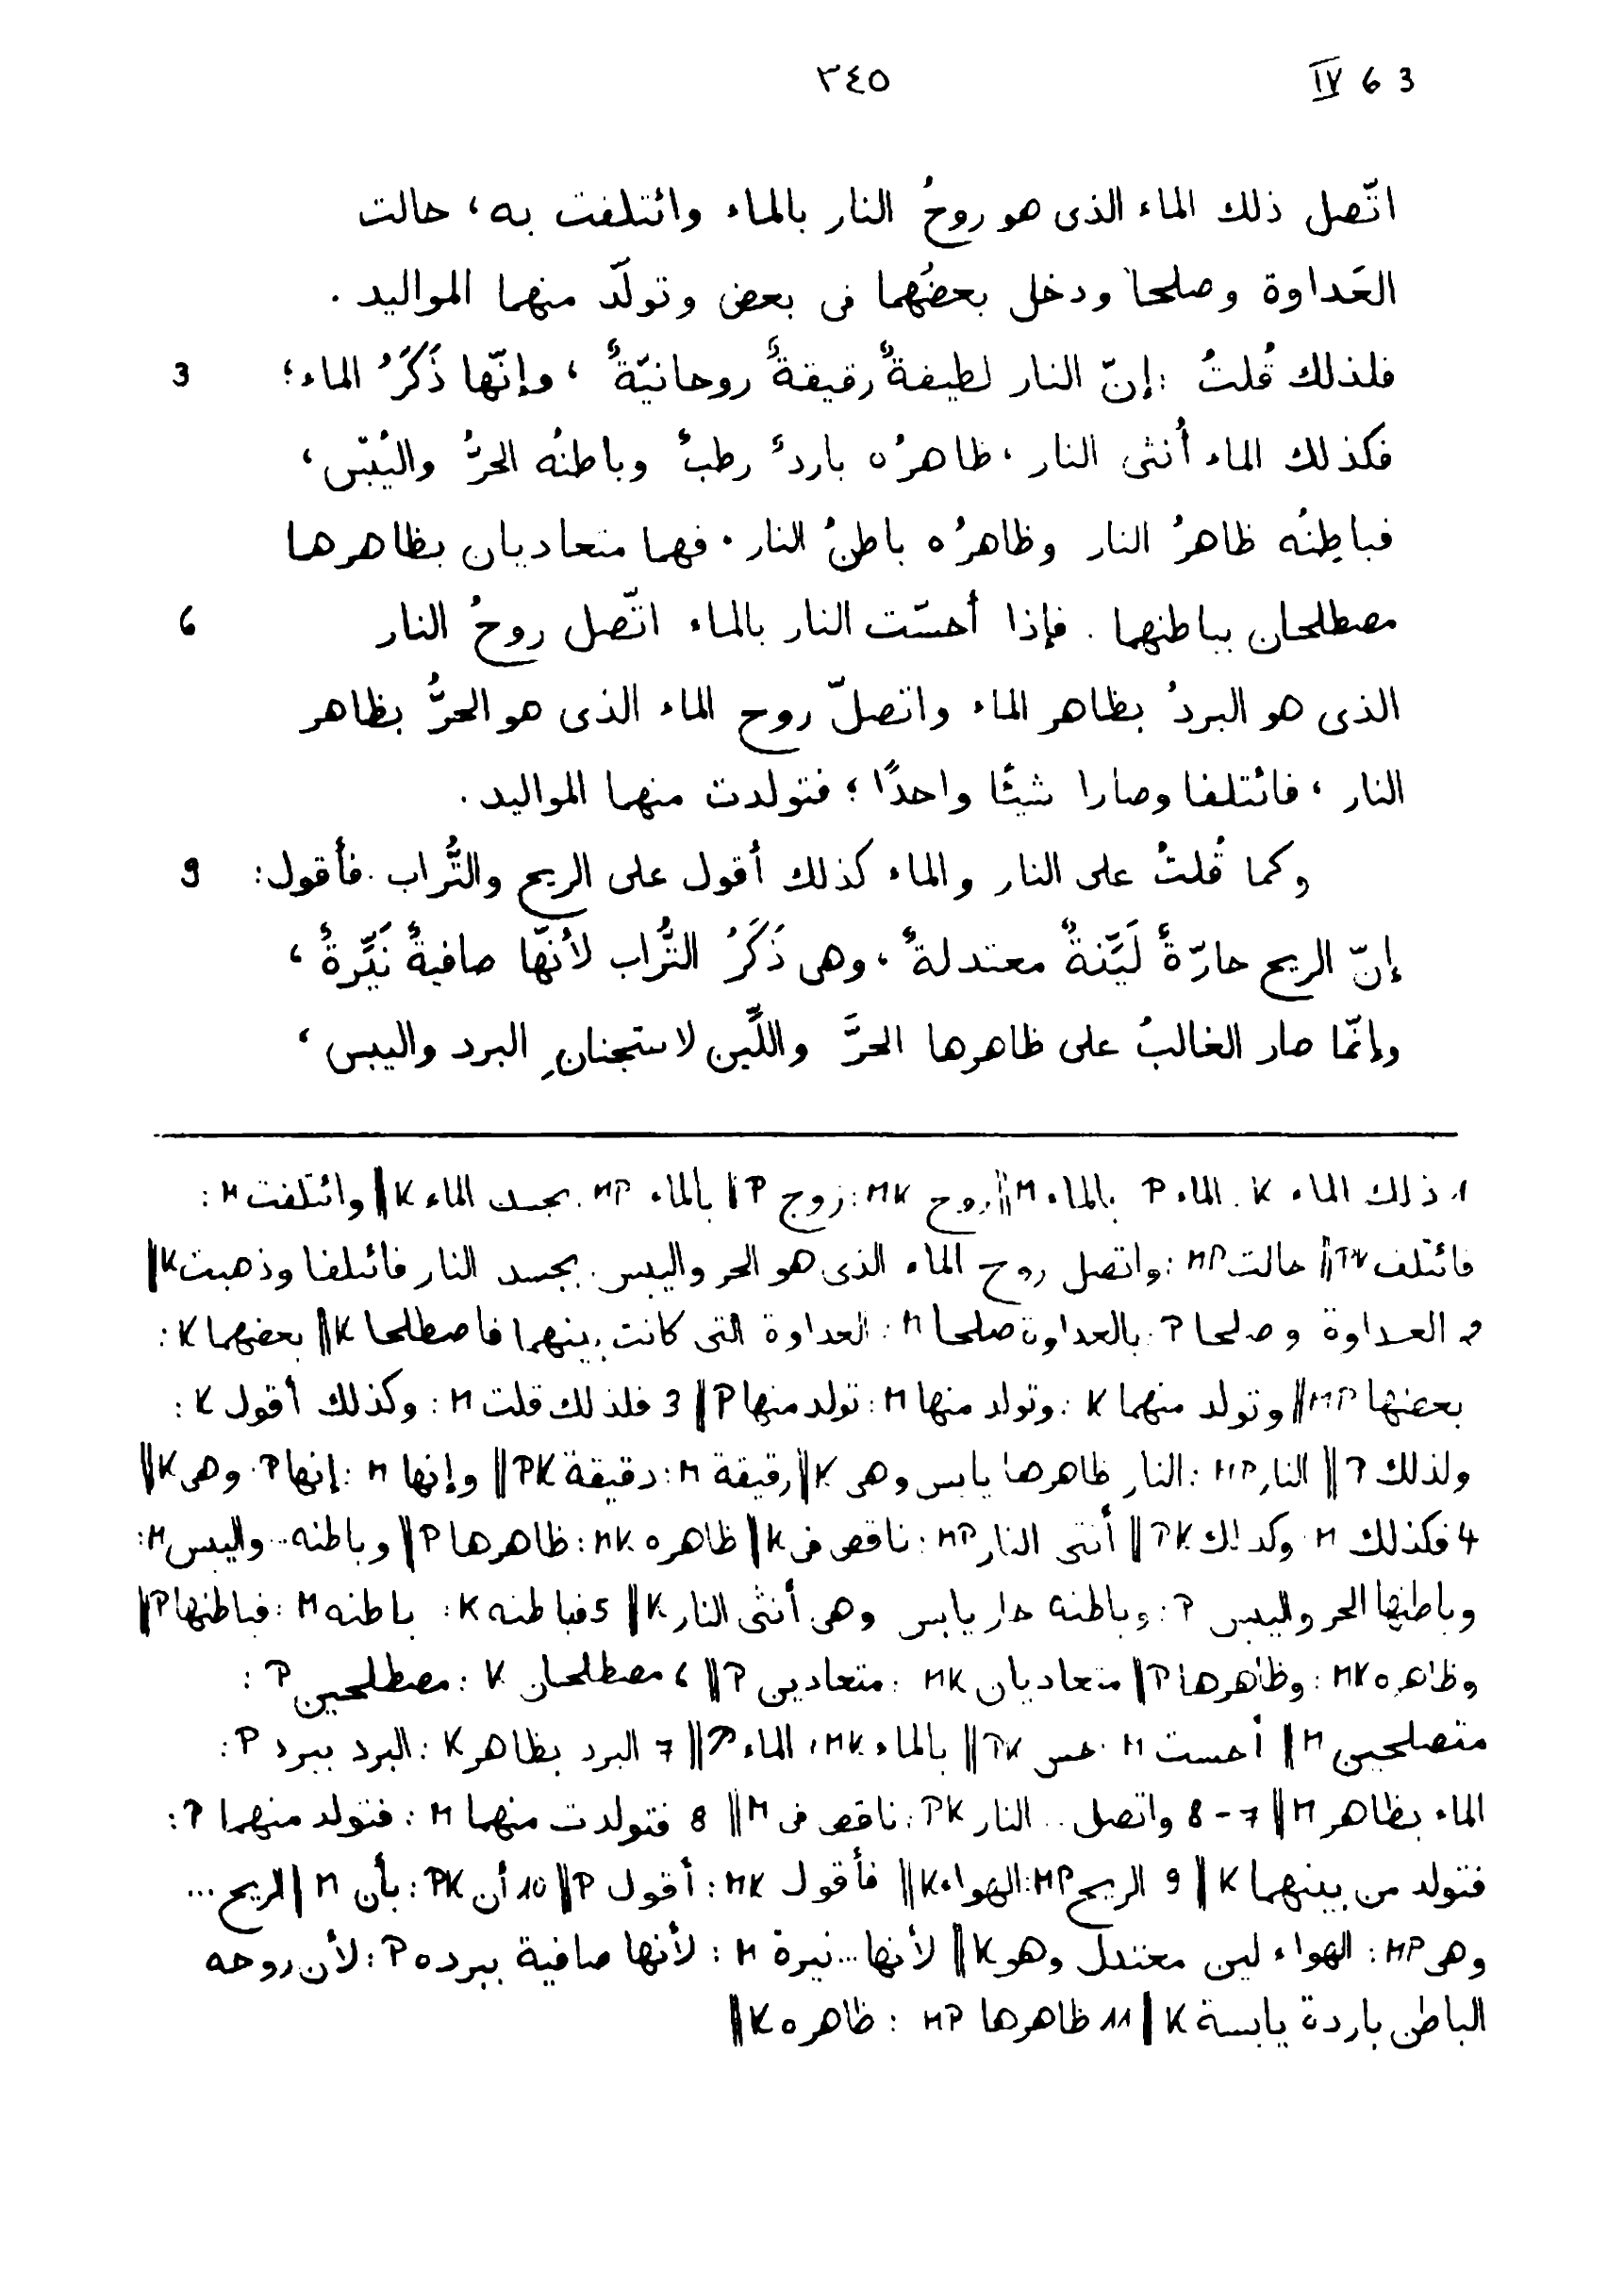 ٣٤٥ IV 6 3
اتّصل ذلك الماء الذى هو روحُ النار بالماء وائتلفت به، حالت
العَداوة وصلحا ودخل بعضُهما فى بعض وتولّد منهما المواليد.
فلذلك قُلتُ: إنّ النار لطيفةٌ رقيقةٌ روحانيّةٌ، وإنّها ذَكَرُ الماء؛ 3
فكذلك الماء أُنثى النار، ظاهرُه باردٌ رطبٌ وباطنُه الحرُّ واليُبْس،
فباطِنُه ظاهرُ النار وظاهرُه باطنُ النار. فهما متعاديان بظاهرهما
مصطلحان بباطنهما. فإذا أحسّت النار بالماء اتّصل روحُ النار 6
الذى هو البردُ بظاهر الماء واتصلّ روح الماء الذى هو الحرُّ بظاهر
النار، فائتلفا وصارا شيئًا واحدًا؛ فتولدت منهما المواليد.
وكما قُلتُ على النار والماء كذلك أقول على الريح والتُّراب. فأقول: 9
إنّ الريح حارّةٌ لَيِّنةٌ معتدلةٌ، وهى ذَكَرُ التُّراب لأنّها صافيةٌ نَيِّرةٌ،
وإنّما صار الغالبُ على ظاهرها الحرَّ واللِّين لاستجنانِ البرد واليبس،
1 ذلك الماء K: الماء P: بالماء M || روح MK: زوج P || بالماء MP: بجسد الماء K || وائتلفت M:
فائتلف PK || حالت MP: واتصل روح الماء الذى هو الحر واليبس بجسد النار فائتلفا وذهبت K ||
2 العداوة وصلحا P: بالعداوة صلحا M: العداوة التى كانت بينهما فاصطلحا K || بعضهما K:
بعضها MP || وتولد منهما K: وتولد منها M: تولد منها P || 3 فلذلك قلت M: وكذلك أقول K:
ولذلك P || النار MP: النار ظاهرها يابس وهى K || رقيقة M: دقيقة PK || وإنها M: إنها P: وهى K ||
4 فكذلك M: وكذلك PK || أنثى النار MP: ناقص فى K || ظاهره MK: ظاهرها P || وباطنه.. واليبس M:
وباطنها الحر واليبس P: وباطنه حار يابس وهى أنثى النار K || 5 فباطنه K: باطنه M: فباطنها P ||
وظاهره MK: وظاهرها P || متعاديان MK: متعاديين P || 6 مصطلحان K: مصطلحين P:
متصلحين M || أحست M: حس PK || بالماء MK: الماء P || 7 البرد بظاهر K: البرد ببرد P:
الماء بظاهر M || 7-8 واتصل.. النار PK: ناقص فى M || 8 فتولدت منهما M: فتولد منهما P:
فتولد من بينهما K || 9 الريح MP: الهواء K || فأقول MK: أقول P || 10 أن PK: بأن M || الريح...
وهى MP: الهواء لين معتدل وهو K || لأنها... نيرة M: لأنها صافية ببرده P: لأن روحه
الباطن باردة يابسة K || 11 ظاهرها MP: ظاهره K ||